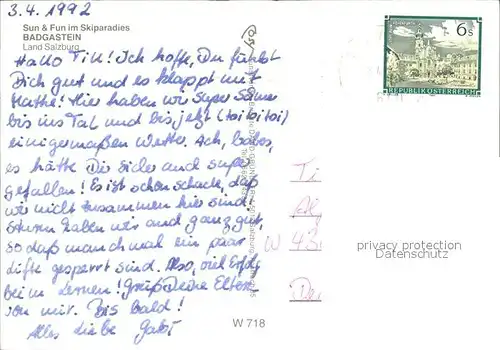 3.4.1992
Sun & Fun im Skiparadies
BADGASTEIN
Land Salzburg
Hallo Till! Ich hoffe, Du fühlst
Dich gut und es klappt mit
Mathe! Hier haben wir super Schnee
bis ins Tal und bis jetzt (toi toi toi)
einigermaßen Wetter. Ach,
es hätte Dir sicher auch super
gefallen! Es ist schon schade, daß
wir nicht zusammen hier sind!
Sturm haben wir auch ganz gut,
so daß manchmal ein paar
Lifte gesperrt sind. Also, viel Erfolg
beim Lernen! Grüß Deine Eltern
von mir. Bis bald!
Alles Liebe Gabi
W 718
6s
REPUBLIK ÖSTERREICH
Ti
W
privacy protection
Datenschutz